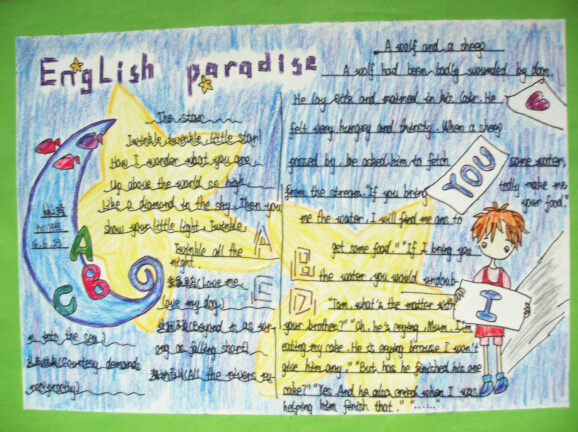 English paradise
The star
Twinkle twinkle, little star
How I wonder what you are
Up above the world so high
Like a diamond in the sky, Then you
show your little light, Twinkle
Twinkle all the
night.
(Love me,
love my dog.)
(Beyond is as wr-
ong as falling short)
(All the rivers ru-
n into the sea.)
(Courtesy demands
reciprocity)
A
B
C
A
B
C
D
A wolf and a sheep
A wolf had been badly wounded by dogs.
He lay sick and maimed in his lair. He
felt very hungry and thirsty. When a sheep
passed by, he asked him to fetch some water
from the stream. "If you bring
me the water, I will find me ans to
get some food." "If I bring you
the water, you would undoub-
tedly make me
your food."
YOU
I
"Tom, what's the matter with
your brother?" "Oh, he's crying, Mum. I'm
eating my cake. He is crying because I won't
give him any." "But has he finished his own
cake?" "Yes. And he also cried when I was
helping him finish that." "......"